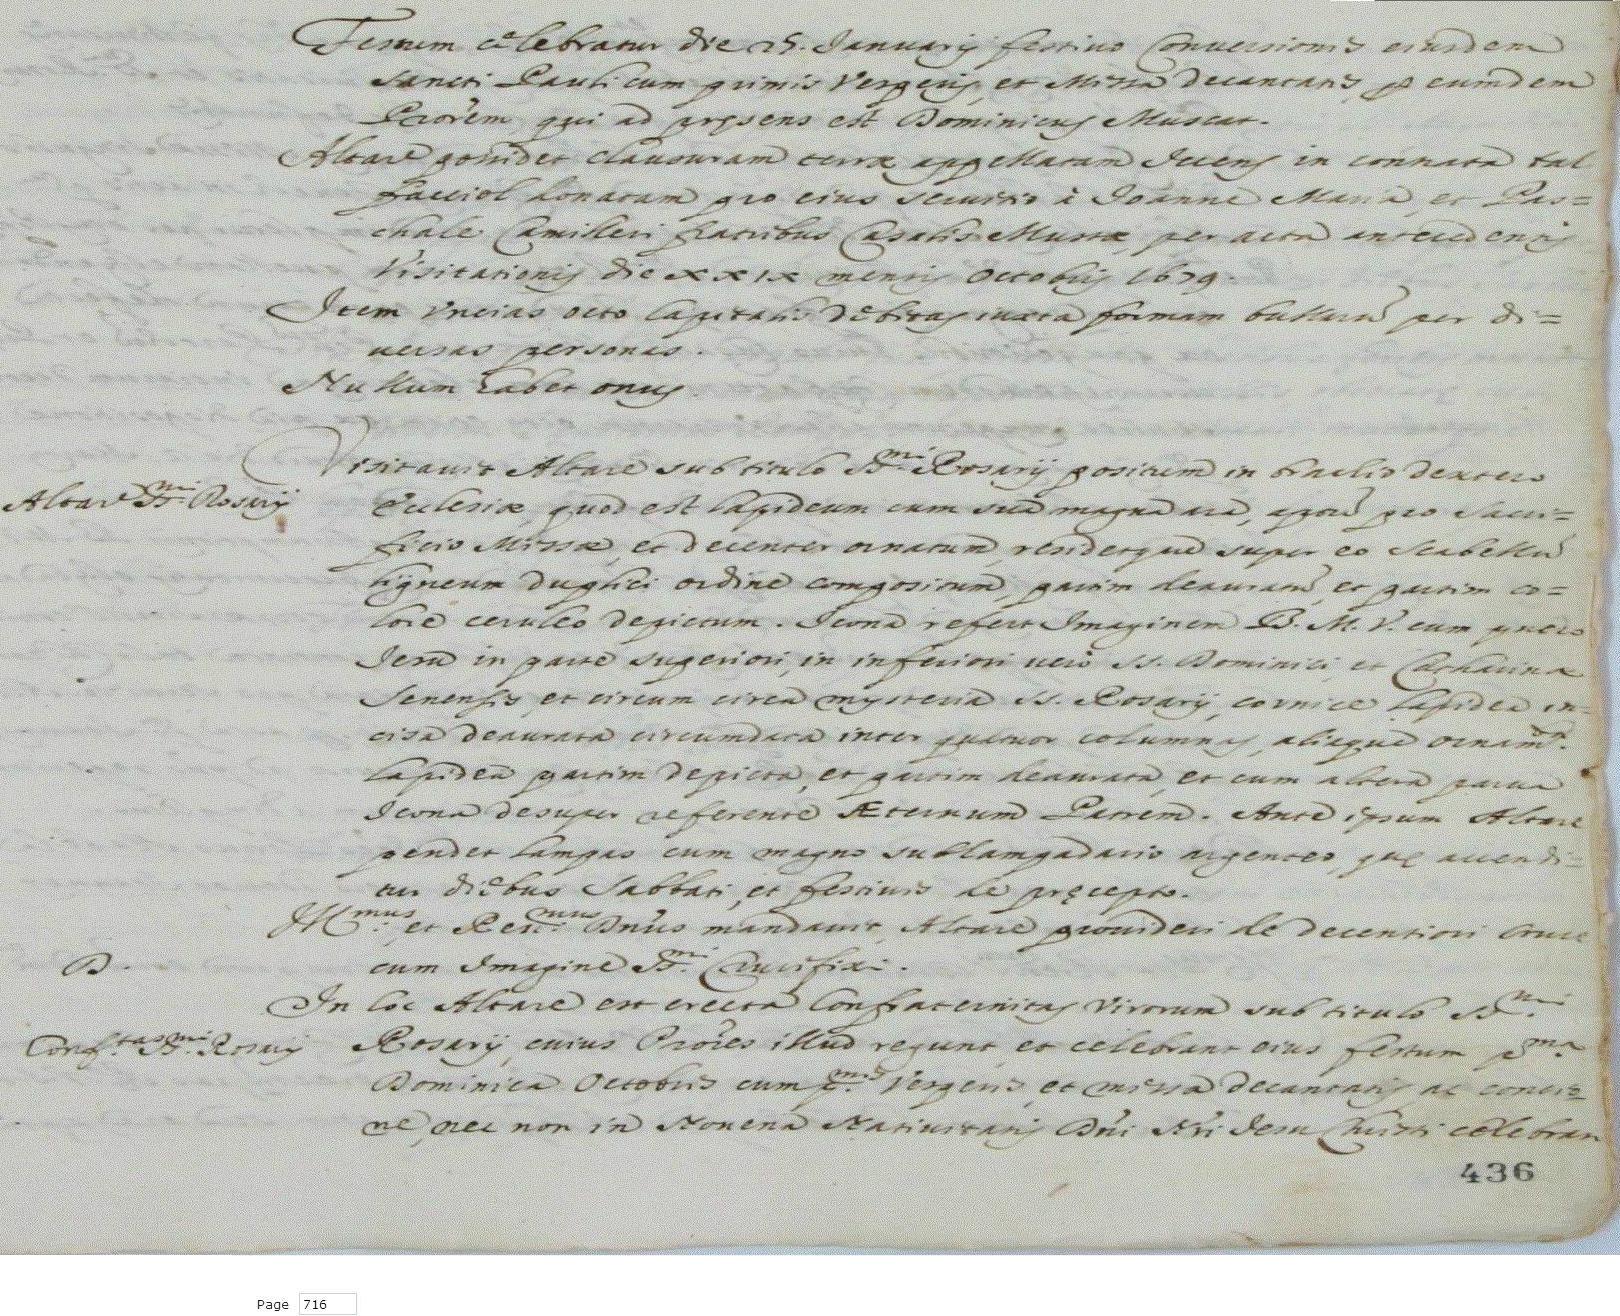 Festum celebratur die 25. Januarij festivo Conversionis eiusdem
Sancti Pauli cum primis Vesperis, et Missa decantatis p eumdem
Prōrem qui ad pręsens est Dominicus Muscat.
Altare possidet clausuram terræ appellatam Icens in contrata tal
facciol donatam pro eius servitio à Joanne Maria, et Pas=
chale Camilleri fratribus Casalis Mustæ per acta antecedentis
Visitationis die xxix mensis Octobris 1679.
Item Vncias octo Capitalis debitas iuxta formam bullarū per di=
uersas personas.
Nullum habet onus.
Visitavit Altare sub titulo SSmi. Rosarij positum in brachio dextero
Altare SSmi. Rosarij
Ecclesiæ, quod est lapideum cum sua magna ara, aptū pro Sacri=
ficio Missæ, et decenter ornatum, residetque super eo Scabellū
ligneum duplici ordine compositum, partim deauratū, et partim co=
lore ceruleo depictum. Icona refert Imaginem B. M. V. cum puero
Jesu in parte superiori, in inferiori uero SS. Dominici, et Catharinæ
Senensis, et circum circa mysteria SS. Rosarij, cornice lapidea in-
cisa deaurata circumdata inter quatuor columnas, aliaque ornamta.
lapidea partim depicta, et partim deaurata, et cum altera parua
Icona desuper referente Æternum Patrem. Ante ipsum Altare
pendet lampas cum magno sublampadario argenteo, quę accendi=
tur diebus Sabbati, et festiuis de pręcepto.
Illmus. et Reumus. Dnūs mandavit, Altare prouideri de decentiori Cruce
B.
cum Imagine SSmi. Crucifixi.
In hoc Altare est erecta Confraternitas Virorum sub titulo SSmi.
Conf.tas SSmi. Rosarij
Rosarij, cuius Prōres illud regunt, et celebrant eius festum pma
Dominica Octobris cum pmis. Vesperis, et missa decantatis ac concio=
ne, nec non in Nouena Natiuitatis Dn̄i Nr̄i Jesu Christi celebran
436
Page 716